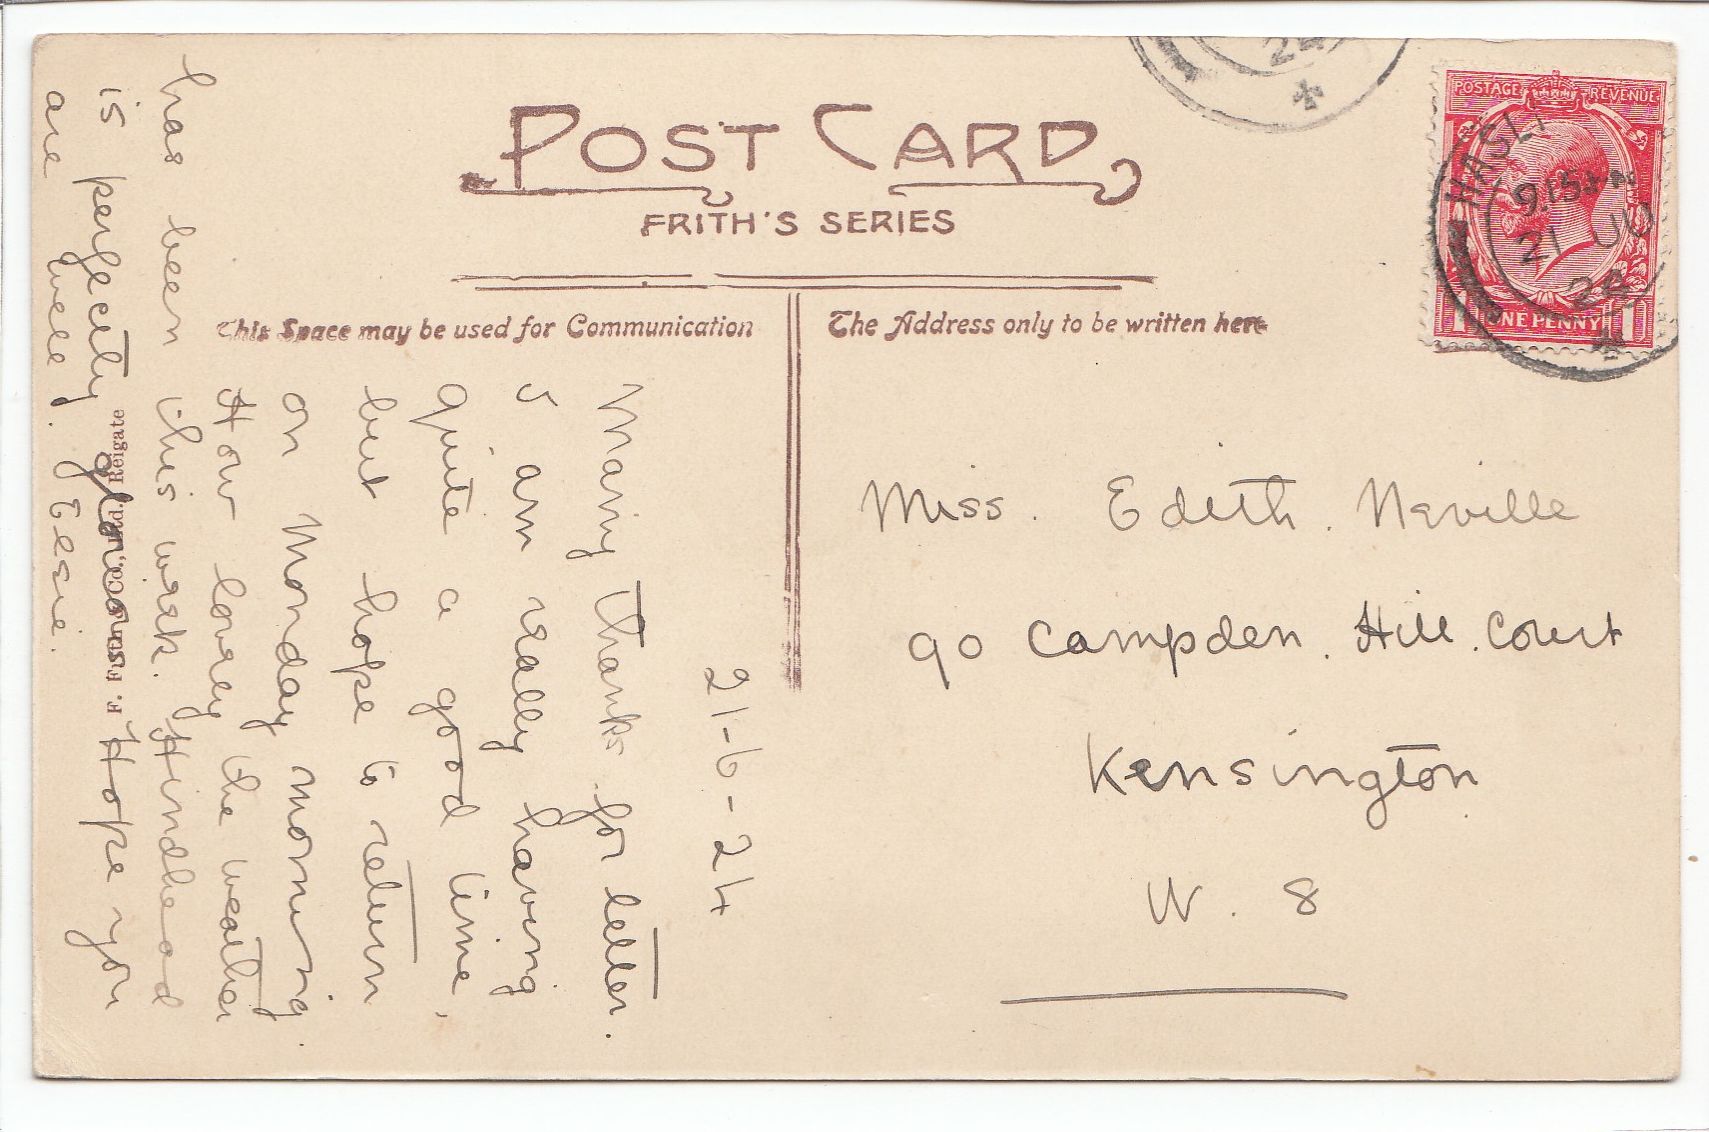 POST CARD
FRITH'S SERIES
This Space may be used for Communication
The Address only to be written here
POSTAGE REVENUE
HASL
9.15 AM
21 JU
24
1 ONE PENNY 1
24
21-6-24
Many thanks for letter.
I am really having
quite a good time,
but hope to return
on Monday morning.
How lovely the weather
has been this week. Hindhead
is perfectly glorious. Hope you
are well. Elsie.
F. Frith & Co., Ltd., Reigate
Miss. Edith. Neville
90 Campden. Hill. Court
Kensington
W. 8